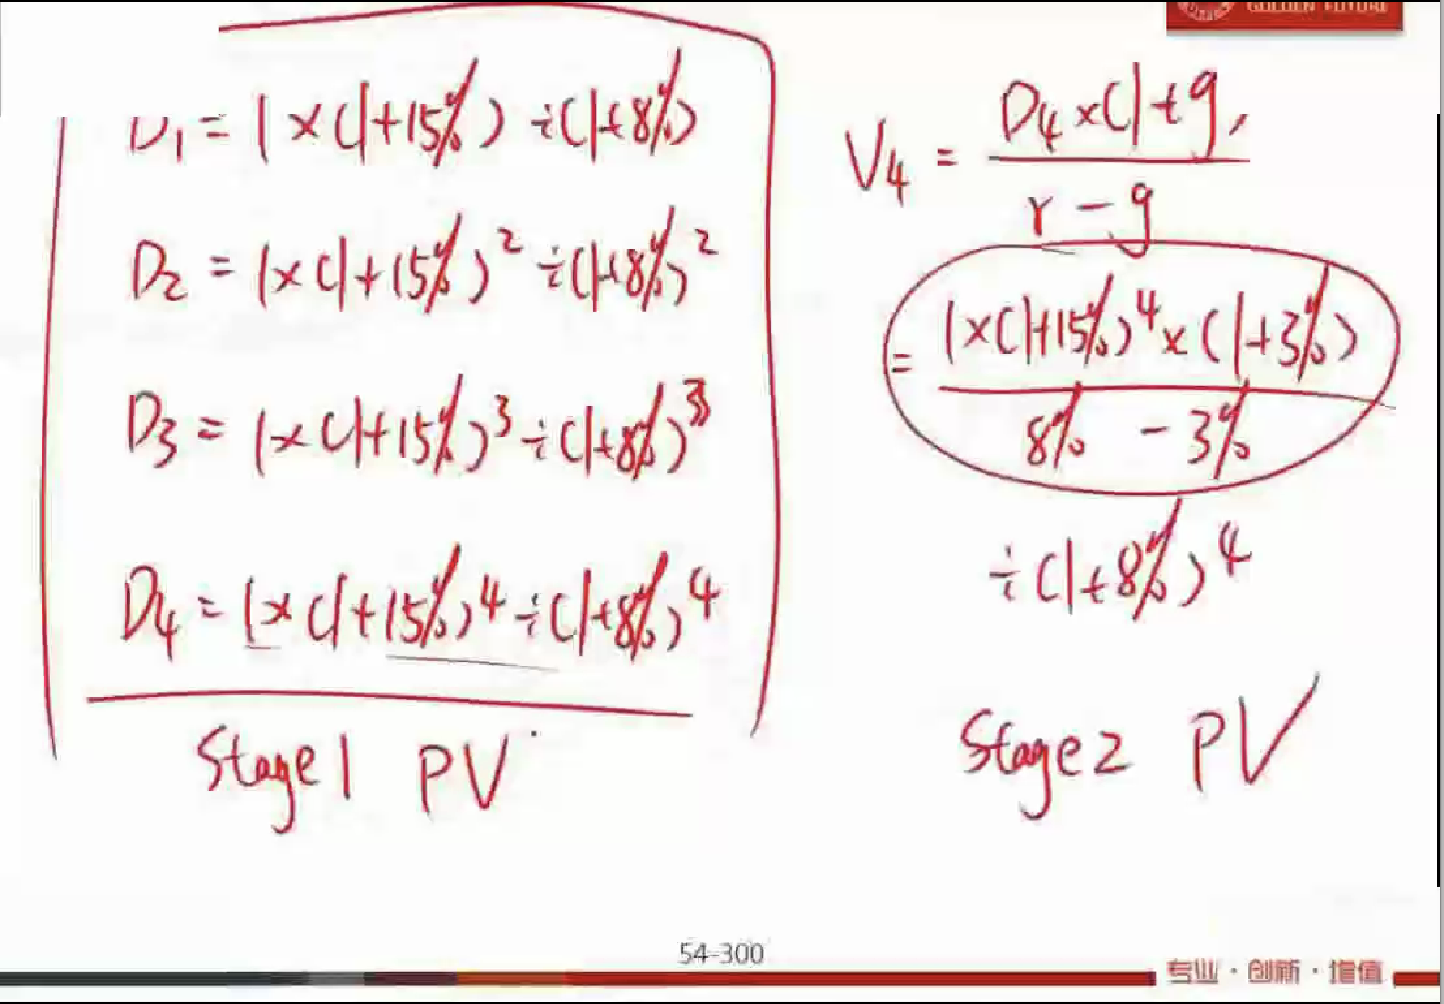 GOLDEN FUTURE
D₁ = 1×(1+15%) ÷(1+8%)
D₂ = 1×(1+15%)² ÷(1+8%)²
D₃ = 1×(1+15%)³ ÷(1+8%)³
D₄ = 1×(1+15%)⁴ ÷(1+8%)⁴
Stage1 PV
V₄ = D₄×(1+g)
r - g
= 1×(1+15%)⁴×(1+3%)
8% - 3%
÷(1+8%)⁴
Stage2 PV
54-300
专业 · 创新 · 增值